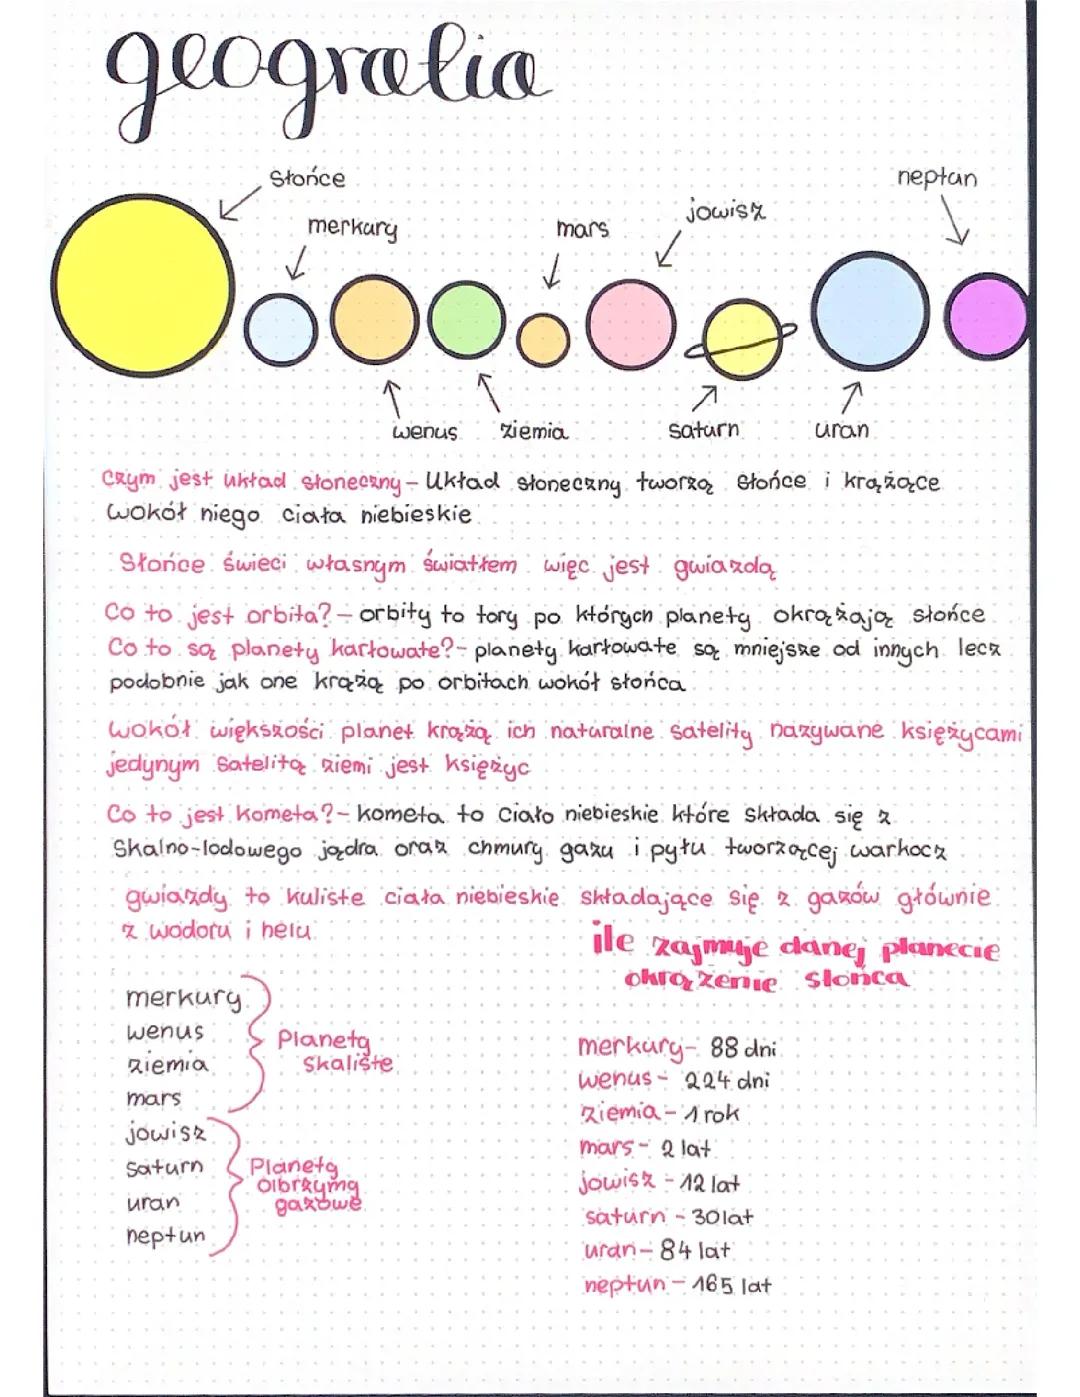 geografia
Słońce
neptun
merkury
mars
jowisz
wenus
ziemia
saturn
uran
Czym jest układ słoneczny - Układ słoneczny tworzą Słońce i krążące
wokół niego ciała niebieskie
Słońce świeci własnym światłem więc jest gwiazdą
Co to jest orbita? - orbity to tory po których planety okrążają słońce
Co to są planety karłowate? - planety karłowate są mniejsze od innych lecz
podobnie jak one krążą po orbitach wokół słońca
wokół większości planet krążą ich naturalne satelity nazywane księżycami
jedynym Satelitą ziemi jest księżyc
Co to jest kometa? - kometa to ciało niebieskie które składa się z
Skalno-lodowego jądra oraz chmury gazu i pyłu tworzącej warkocz
gwiazdy to kuliste ciała niebieskie składające się z gazów głównie
z wodoru i helu
ile zajmuje danej planecie
okrążenie słońca
merkury
wenus
ziemia
mars
Planety
Skaliste
jowisz
saturn
uran
neptun
Planety
olbrzymy
gazowe
merkury - 88 dni
wenus - 224 dni
ziemia - 1 rok
mars - 2 lat
jowisz - 12 lat
saturn - 30 lat
uran - 84 lat
neptun - 165 lat